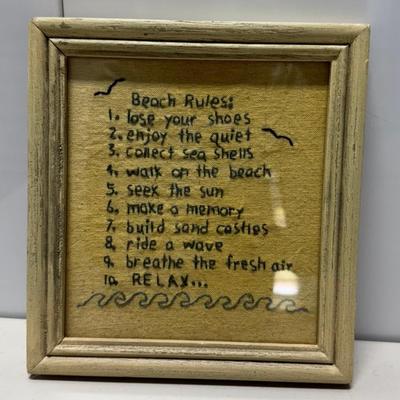 Beach Rules:
1. lose your shoes
2. enjoy the quiet
3. collect sea shells
4. walk on the beach
5. seek the sun
6. make a memory
7. build sand castles
8. ride a wave
9. breathe the fresh air
10. RELAX...